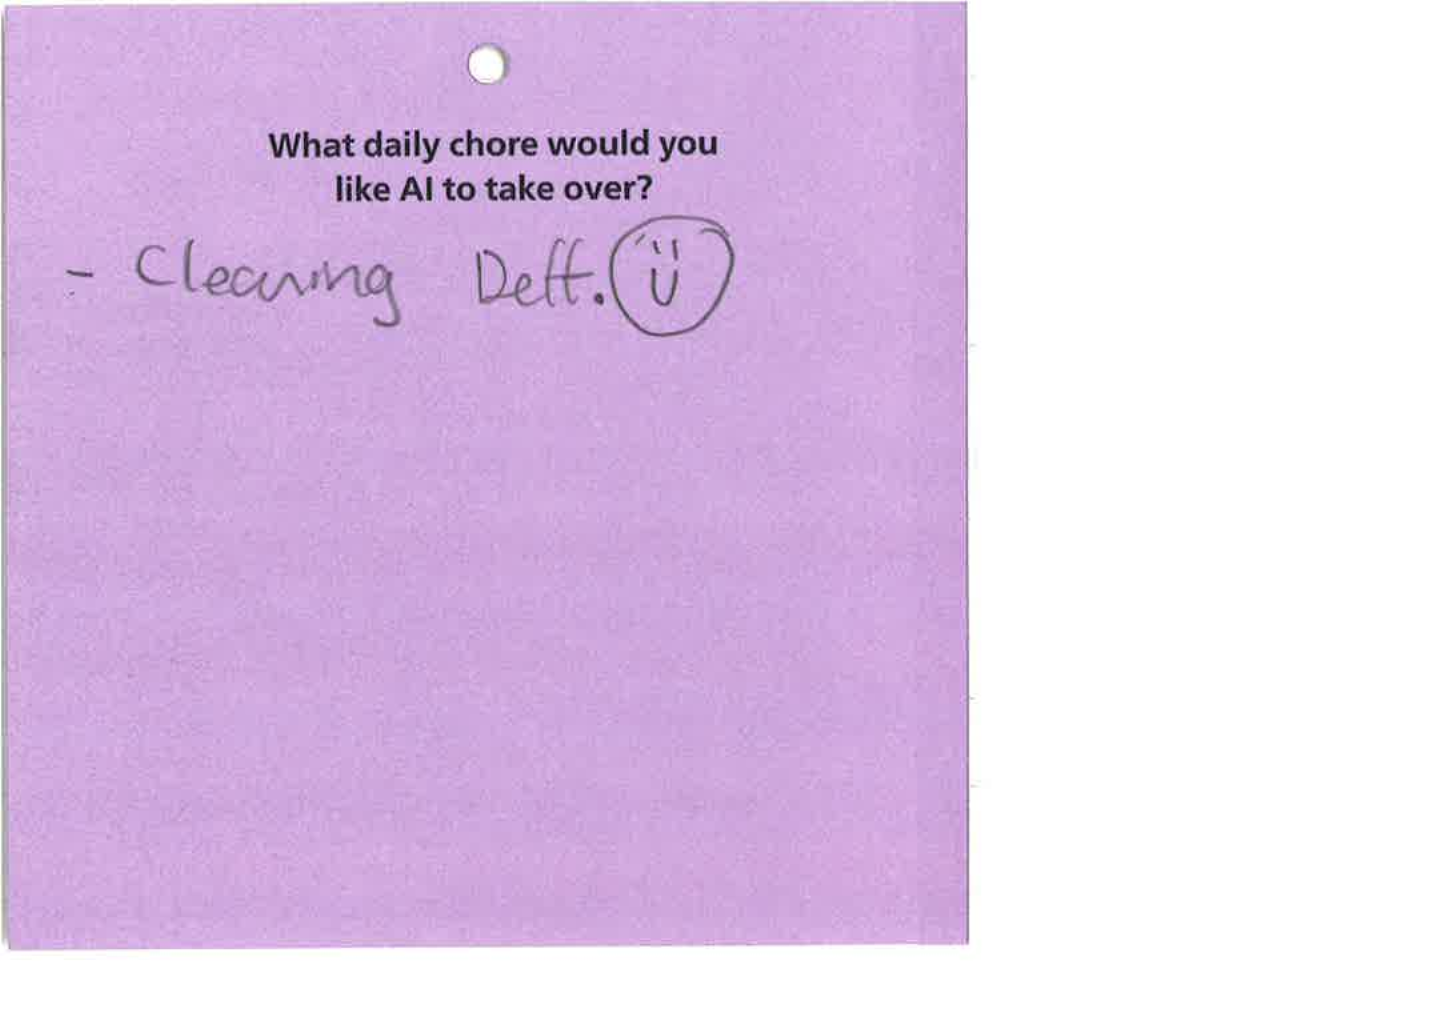 What daily chore would you
like AI to take over?
- Cleaning Deff.